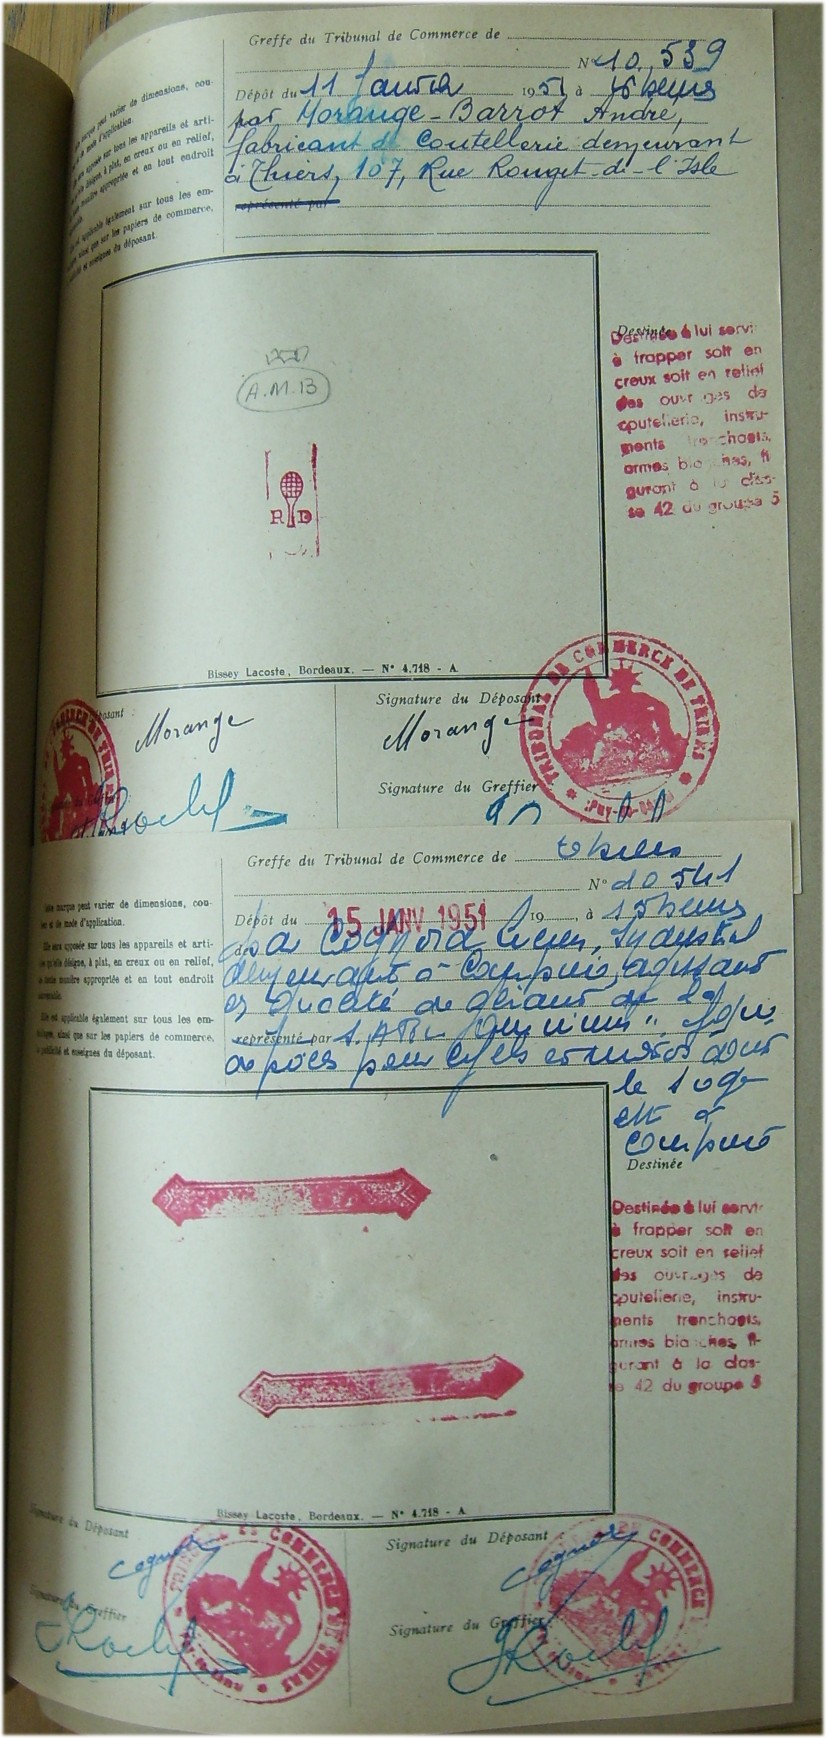 Greffe du Tribunal de Commerce de
N° 10.539
Dépôt du 11 Janvier 1951 à 15 heures
par Morange-Barrot André,
fabricant de Coutellerie demeurant
à Thiers, 107, Rue Rouget-de-l'Isle
représenté par
marque peut varier de dimensions, cou-
de mode d'application.
apposée sur tous les appareils et arti-
désigne, à plat, en creux ou en relief,
manière appropriée et en tout endroit
est applicable également sur tous les em-
ainsi que sur les papiers de commerce,
et enseignes du déposant.
A.M.B
R D
Destinée
Destinée à lui servir
à frapper soit en
creux soit en relief
des ouvrages de
coutellerie, instru-
ments tranchants,
armes blanches, fi-
gurant à la clas-
se 42 du groupe 5
Bissey Lacoste, Bordeaux. — N° 4.718 - A
Déposant :
Morange
Signature du Déposant
Morange
Signature du Greffier
TRIBUNAL DE COMMERCE DE THIERS
PUY-DE-DÔME
Greffe du Tribunal de Commerce de Thiers
N° 10 541
Dépôt du 15 JANV 1951 19 , à 15 heures
Lucien, Industriel
demeurant à agissant
es qualité de gérant de la
représenté par S.ARL
de pour cycles et motos dont
le siège
est à
Cette marque peut varier de dimensions, cou-
leur et de mode d'application.
Elle sera apposée sur tous les appareils et arti-
cles qu'elle désigne, à plat, en creux ou en relief,
de toute manière appropriée et en tout endroit
convenable.
Elle est applicable également sur tous les em-
ballages, ainsi que sur les papiers de commerce,
de publicité et enseignes du déposant.
Destinée
Destinée à lui servir
à frapper soit en
creux soit en relief
des ouvrages de
coutellerie, instru-
ments tranchants,
armes blanches, fi-
gurant à la clas-
se 42 du groupe 5
Bissey Lacoste, Bordeaux. — N° 4.718 - A
Signature du Déposant
Signature du Greffier
Signature du Déposant :
Signature du Greffier
TRIBUNAL DE COMMERCE DE THIERS